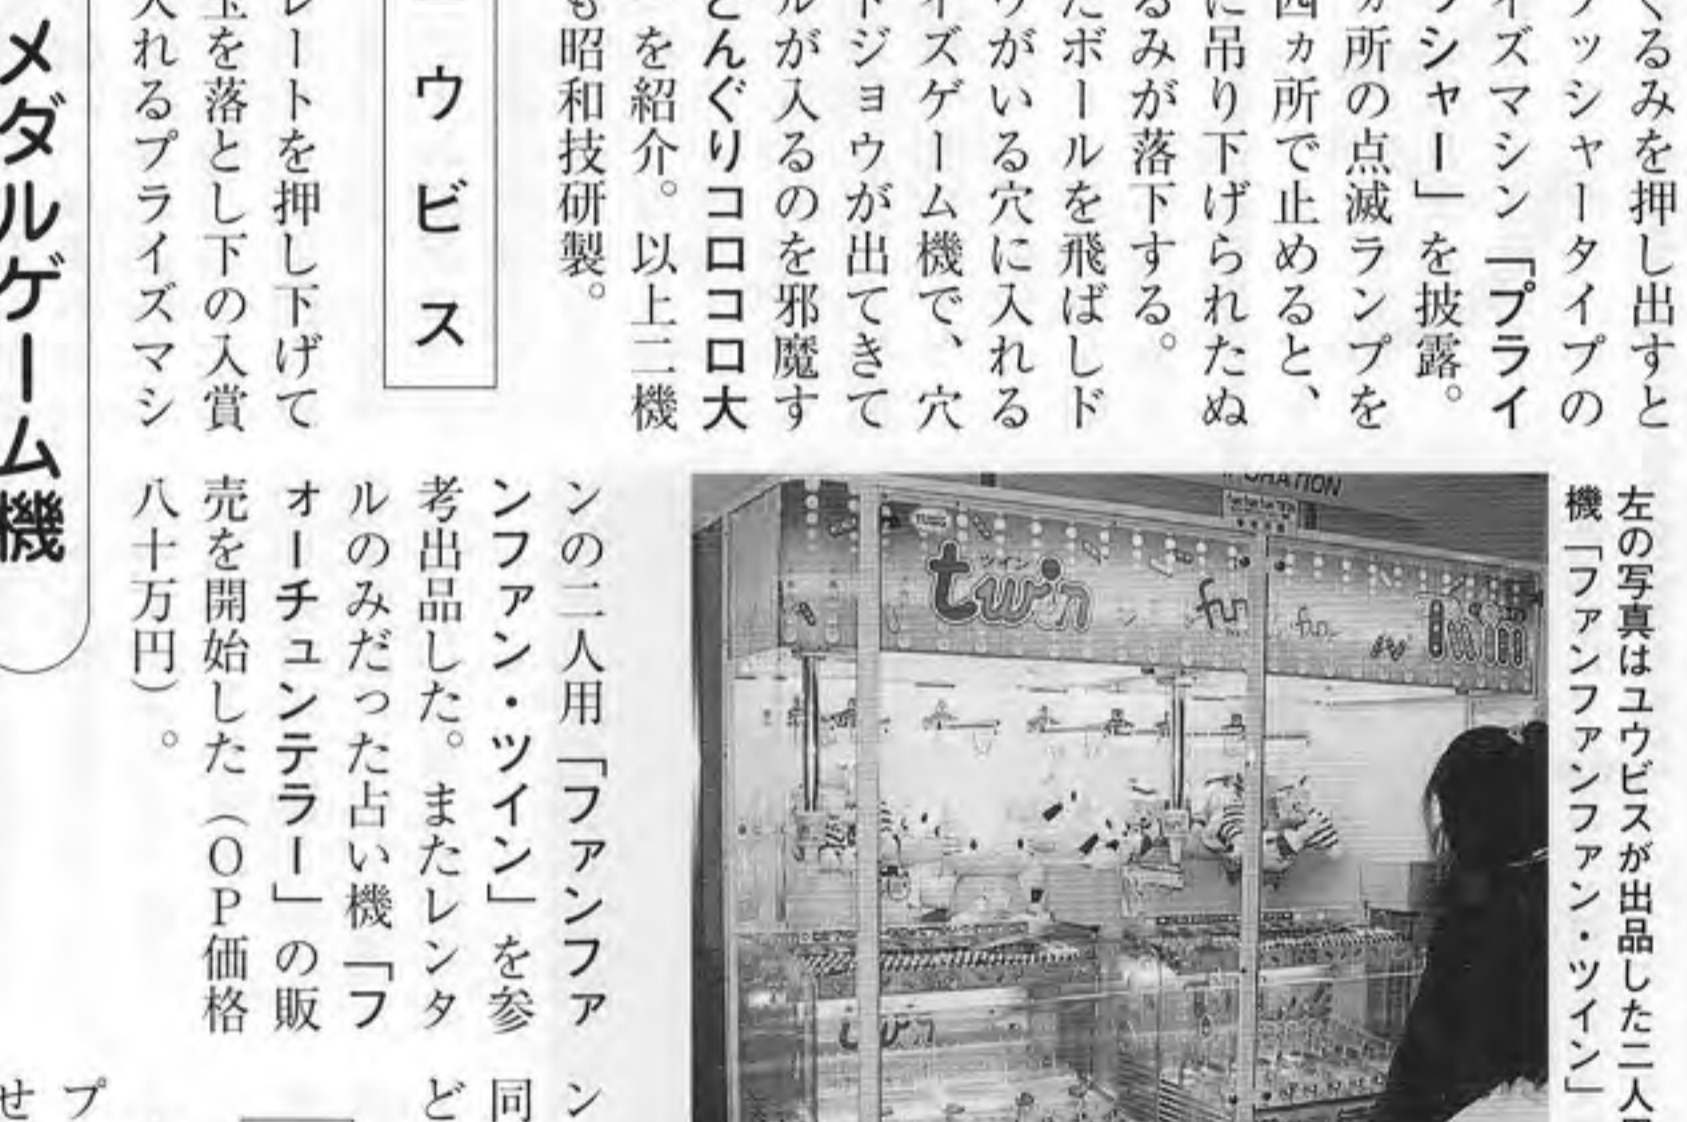 るみを押し出すと
ッシャータイプの
イズマシン「プライ
シャー」を披露。
所の点滅ランプを
四ヵ所で止めると、
に吊り下げられたぬ
るみが落下する。
たボールを飛ばしド
がいる穴に入れる
イズゲーム機で、穴
ドジョウが出てきて
ルが入るのを邪魔す
どんぐりコロコロ大
を紹介。以上二機
も昭和技研製。
ウビス
レートを押し下げて
玉を落とし下の入賞
入れるプライズマシ
左の写真はユウビスが出品した二人用
機「ファンファンファン・ツイン」
ツイン
twin
fun
fun
twin
ンの二人用「ファンファ
ンファン・ツイン」を参
考出品した。またレンタ
ルのみだった占い機「フ
ォーチュンテラー」の販
売を開始した（OP価格
八十万円）。
メダルゲーム機
ン
同
ど
プ
せ